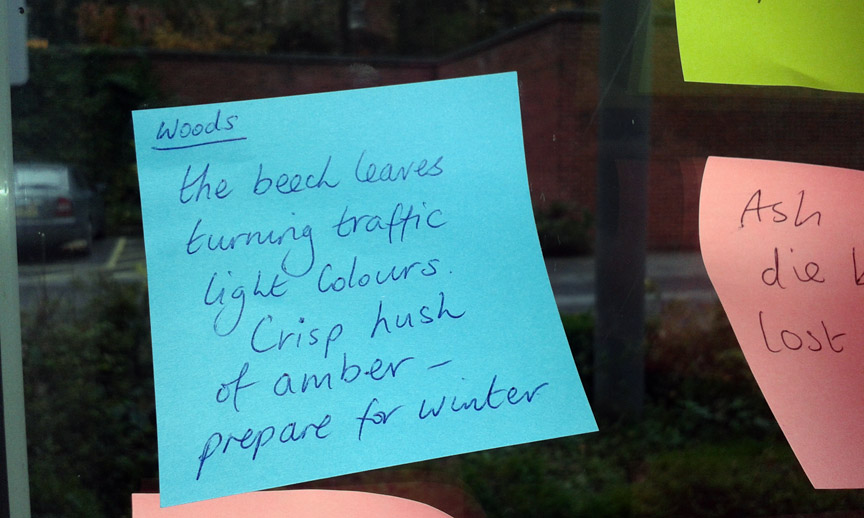 Woods
the beech leaves
turning traffic
light colours.
Crisp hush
of amber –
prepare for winter
Ash
die
lost